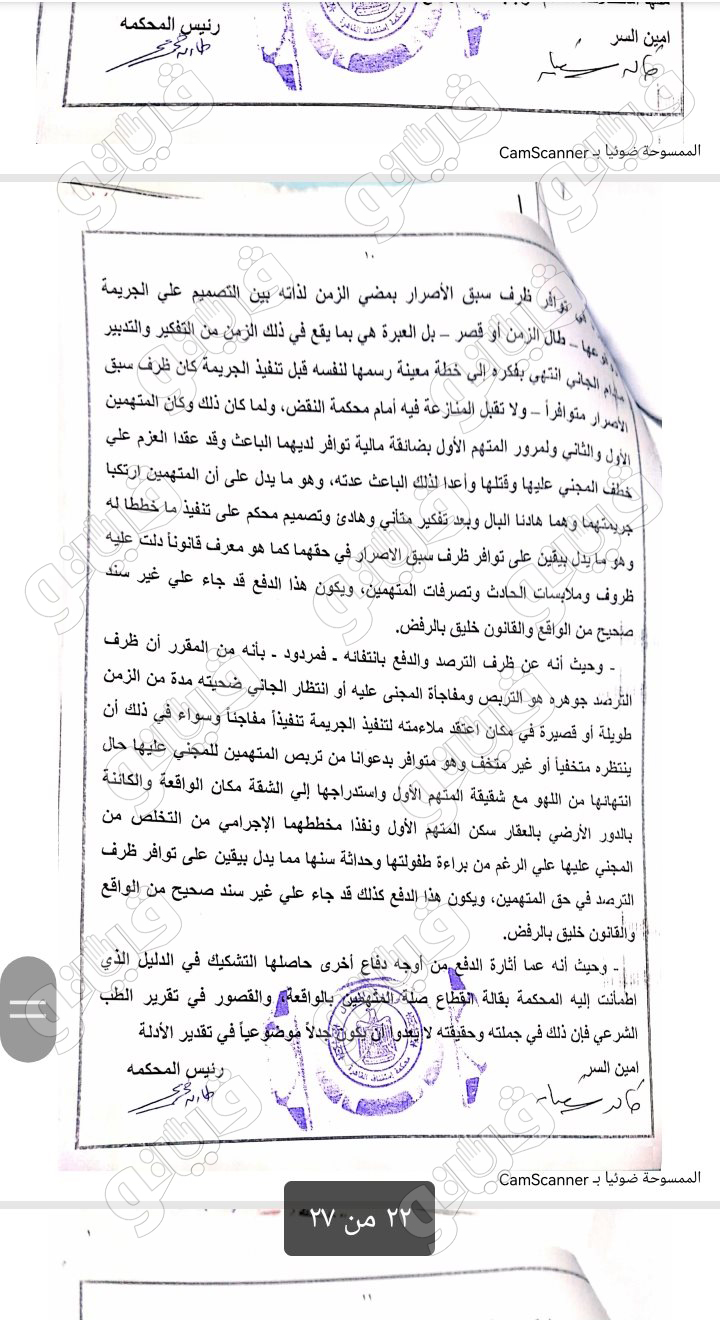 امين السر
رئيس المحكمه
الممسوحة ضوئيا بـ CamScanner
١٠
في توافر ظرف سبق الأصرار بمضي الزمن لذاته بين التصميم علي الجريمة
– طال الزمن أو قصر – بل العبرة هي بما يقع في ذلك الزمن من التفكير والتدبير
الجاني انتهي بفكره إلي خطة معينة رسمها لنفسه قبل تنفيذ الجريمة كان ظرف سبق
الأصرار متوافراً – ولا تقبل المنازعة فيه أمام محكمة النقض، ولما كان ذلك وكان المتهمين
الأول والثاني ولمرور المتهم الأول بضائقة مالية توافر لديهما الباعث وقد عقدا العزم علي
خطف المجني عليها وقتلها وأعدا لذلك الباعث عدته، وهو ما يدل على أن المتهمين ارتكبا
جريمتهما وهما هادنا البال وبعد تفكير متأني وهادئ وتصميم محكم على تنفيذ ما خططا له
وهو ما يدل بيقين على توافر ظرف سبق الاصرار في حقهما كما هو معرف قانوناً دلت عليه
ظروف وملابسات الحادث وتصرفات المتهمين، ويكون هذا الدفع قد جاء علي غير سند
صحيح من الواقع والقانون خليق بالرفض.
- وحيث أنه عن ظرف الترصد والدفع بانتفائه - فمردود - بأنه من المقرر أن ظرف
الترصد جوهره هو التربص ومفاجأة المجنى عليه أو انتظار الجاني ضحيته مدة من الزمن
طويلة أو قصيرة في مكان اعتقد ملاءمته لتنفيذ الجريمة تنفيذاً مفاجئاً وسواء في ذلك أن
ينتظره متخفياً أو غير متخف وهو متوافر بدعوانا من تربص المتهمين للمجني عليها حال
انتهائها من اللهو مع شقيقة المتهم الأول واستدراجها إلي الشقة مكان الواقعة والكائنة
بالدور الأرضي بالعقار سكن المتهم الأول ونفذا مخططهما الإجرامي من التخلص من
المجني عليها علي الرغم من براءة طفولتها وحداثة سنها مما يدل بيقين على توافر ظرف
الترصد في حق المتهمين، ويكون هذا الدفع كذلك قد جاء علي غير سند صحيح من الواقع
والقانون خليق بالرفض.
- وحيث أنه عما أثارة الدفع من أوجه دفاع أخرى حاصلها التشكيك في الدليل الذي
اطمأنت إليه المحكمة بقالة انقطاع صلة المتهمين بالواقعة، والقصور في تقرير الطب
الشرعي فإن ذلك في جملته وحقيقته لا يعدوا أن يكون جدلاً موضوعياً في تقدير الأدلة
امين السر
رئيس المحكمه
الممسوحة ضوئيا بـ CamScanner
٢٢ من ٢٧
١١